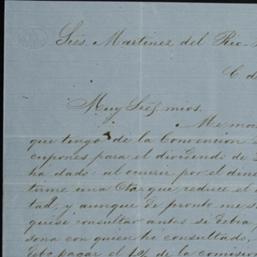 Sres. Martinez del Rio
C. d
Muy Sres. mios.
Me mo
que tengo de la Convencion
cupones para el dividendo de
ha dado: al ocurrir por el dine
tirme una que reduce el
tad, y aunque de pronto me
quise consultar antes si debia
sona con quien he consultado,
pagar el de la comision